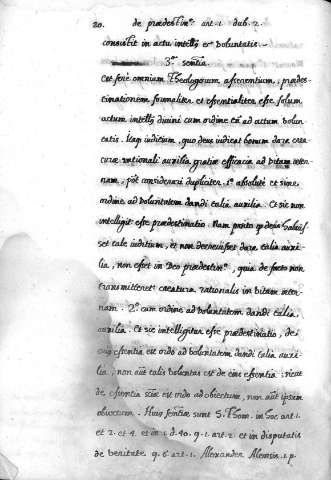 20. de prædestin.e art. 1. dub. 2.
consistit in actu intellq̃ et voluntatis.
3.a sentia
est ferè omnium Theologorum asserentium, prædes-
tinationem formaliter et essentialiter esse solum
actum intellq̃ divini cum ordine tn̄ ad actum volun-
tatis. Nam iuditium, quo deus iudicat bonum dare crea-
turæ rationali auxilia gratiæ efficacia ad vitam æter-
nam, põt considerari dupliciter. 1.o absolutè et sine
ordine ad voluntatem dandi talia auxilia. Et sic non
intelligit esse prædestinatio. Nam posito q̃ deus habuis-
set tale iuditium, et non decrevisset dare talia auxi-
lia, non esset in Deo prædestin.o, quia de facto non
transmitteret creatura rationalis in vitam æter-
nam. 2.o cum ordine ad voluntatem dandi talia
auxilia. Et sic intelligitur esse prædestinatio, de
cuius essentia est ordo ad voluntatem dandi talia auxi-
lia, non aũt talis voluntas est de eius essentia: sicut
de essentia sciæ est ordo ad obiectum, non aũt ipsum
obiectum. Huius sentiæ sunt S. Thom. in hoc art. 1.
et 2. et 4. et in 1. d. 40. q. 1. art. 2. et in disputatis
de veritate q. 6. art. 1. Alexander Alensis 1. p.